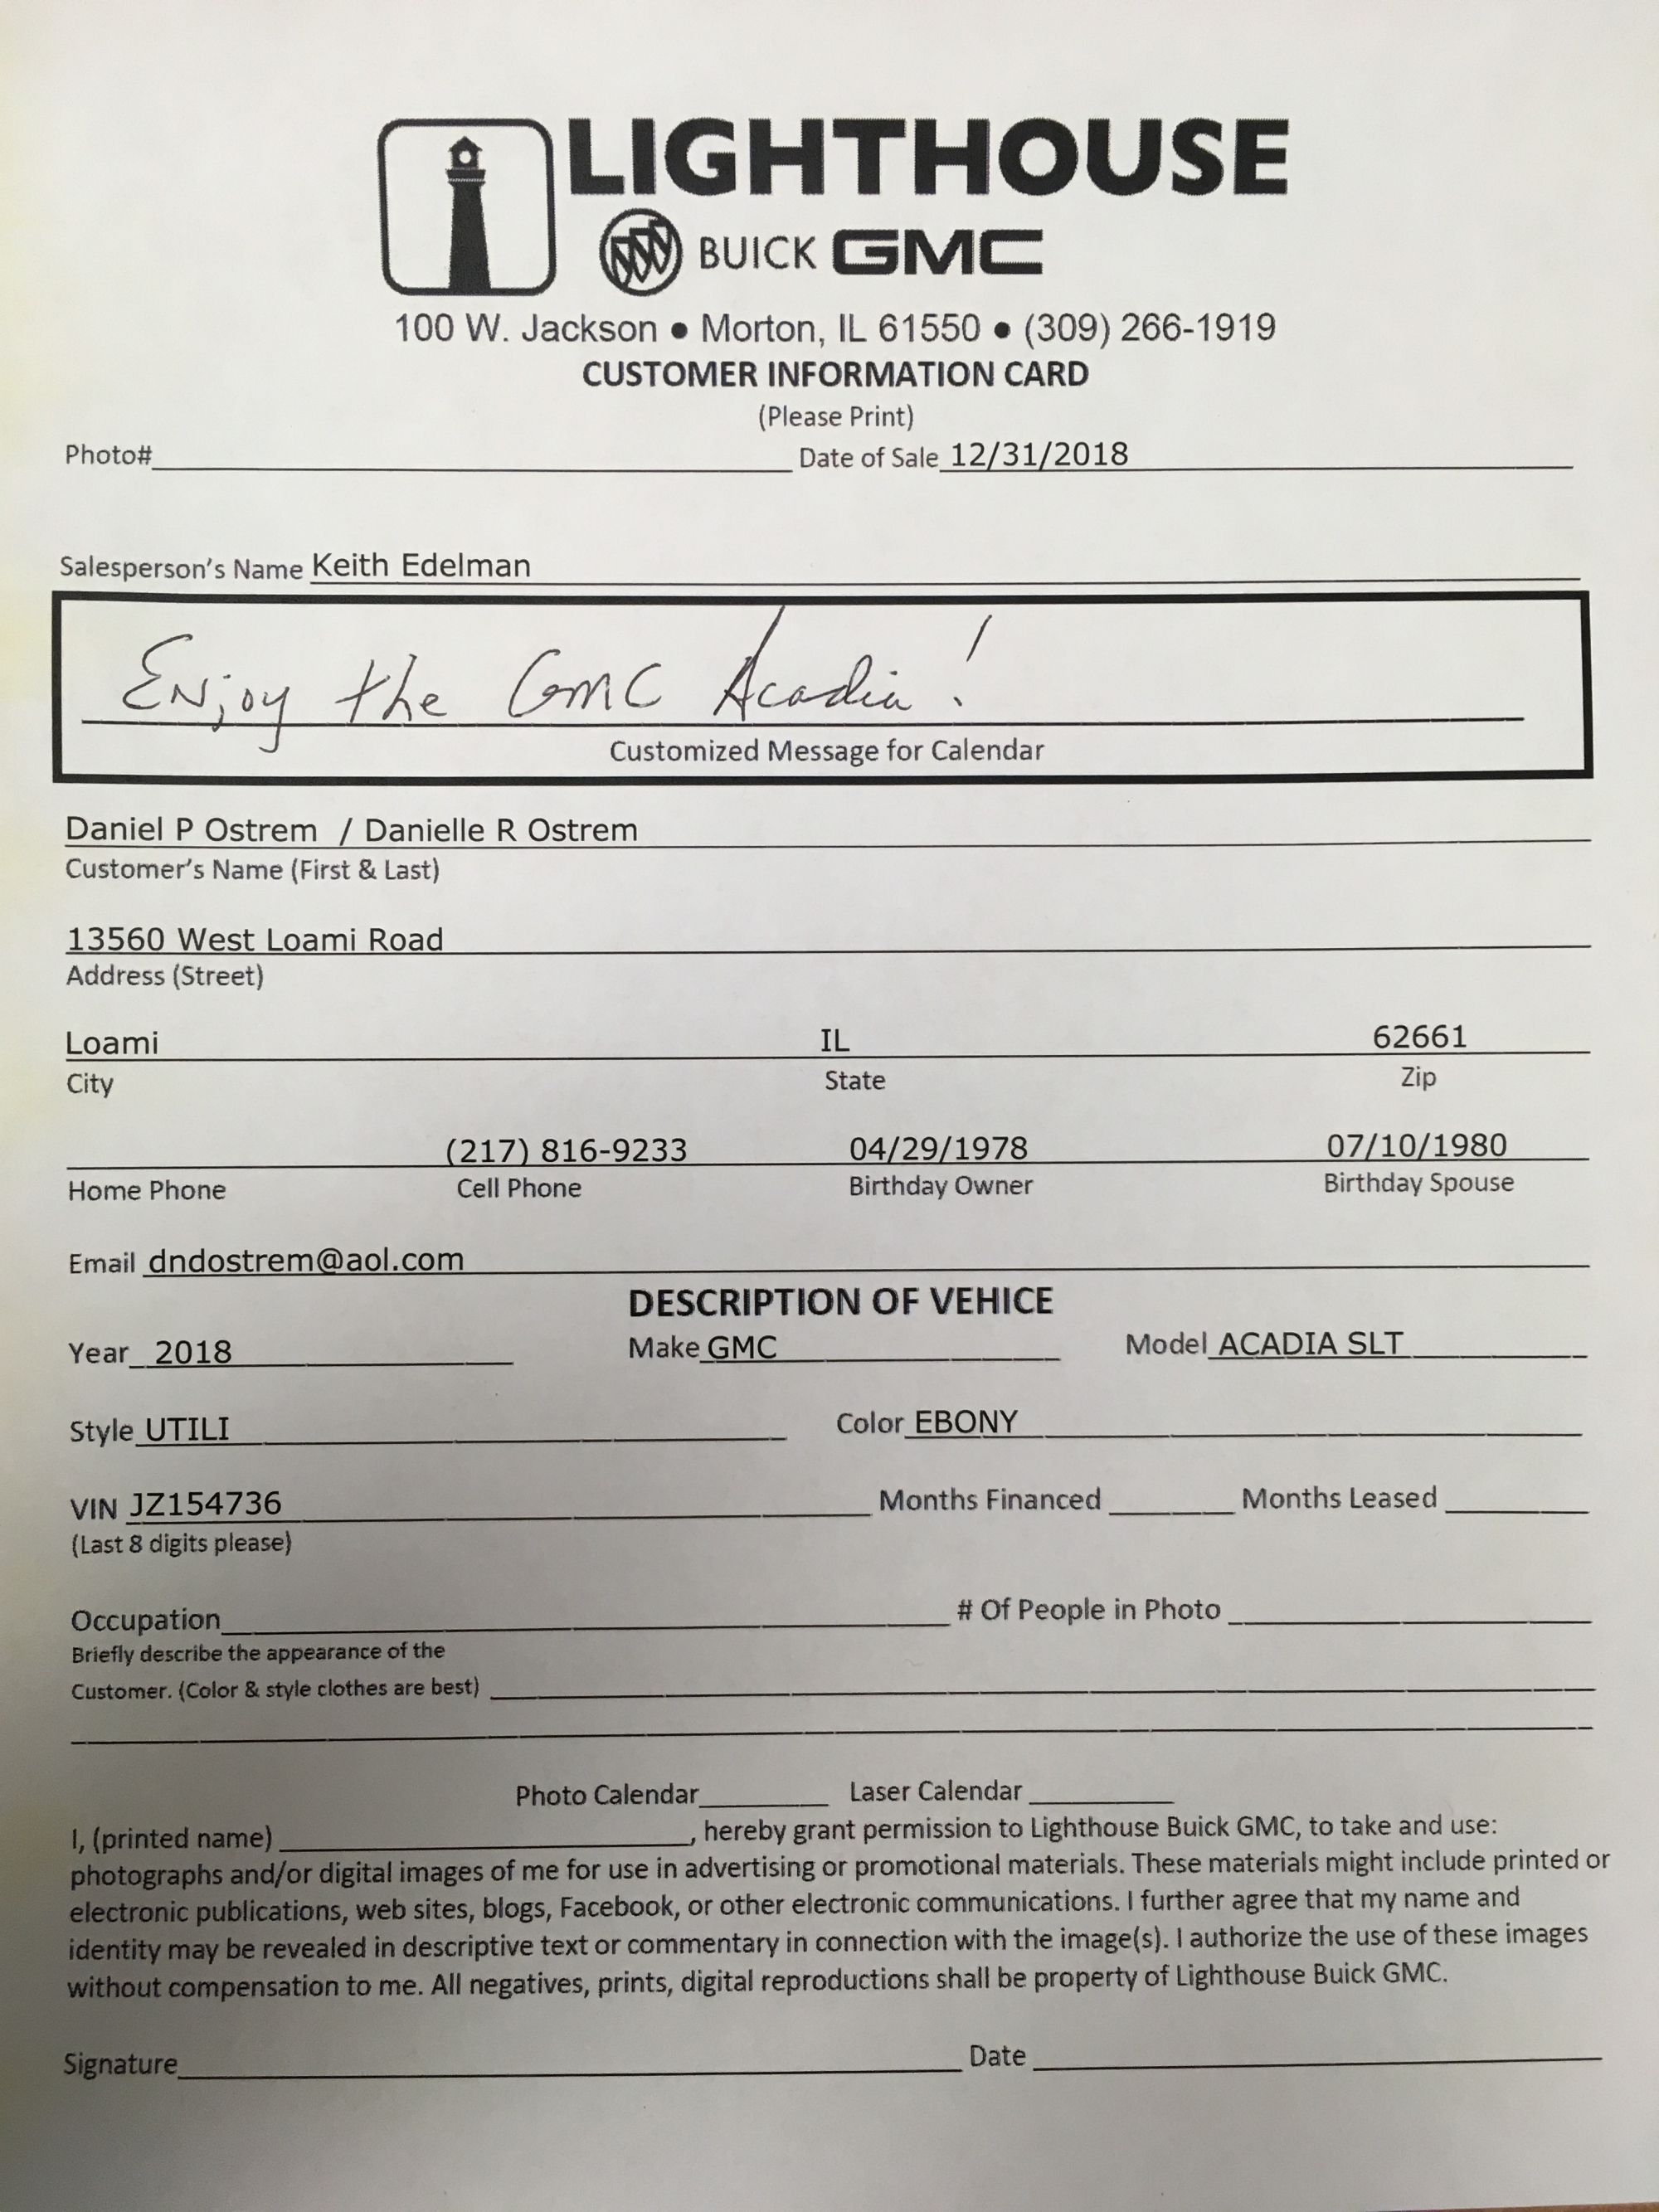 LIGHTHOUSE
BUICK GMC
100 W. Jackson • Morton, IL 61550 • (309) 266-1919
CUSTOMER INFORMATION CARD
(Please Print)
Photo# Date of Sale 12/31/2018
Salesperson's Name Keith Edelman
Enjoy the GMC Acadia!
Customized Message for Calendar
Daniel P Ostrem / Danielle R Ostrem
Customer's Name (First & Last)
13560 West Loami Road
Address (Street)
Loami IL 62661
City State Zip
(217) 816-9233 04/29/1978 07/10/1980
Home Phone Cell Phone Birthday Owner Birthday Spouse
Email dndostrem@aol.com
DESCRIPTION OF VEHICE
Year 2018 Make GMC Model ACADIA SLT
Style UTILI Color EBONY
VIN JZ154736 Months Financed Months Leased
(Last 8 digits please)
Occupation # Of People in Photo
Briefly describe the appearance of the
Customer. (Color & style clothes are best)
Photo Calendar Laser Calendar
I, (printed name) , hereby grant permission to Lighthouse Buick GMC, to take and use:
photographs and/or digital images of me for use in advertising or promotional materials. These materials might include printed or
electronic publications, web sites, blogs, Facebook, or other electronic communications. I further agree that my name and
identity may be revealed in descriptive text or commentary in connection with the image(s). I authorize the use of these images
without compensation to me. All negatives, prints, digital reproductions shall be property of Lighthouse Buick GMC.
Signature Date